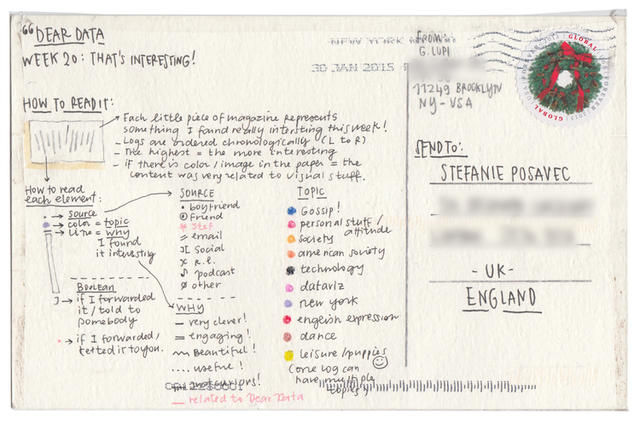 “ DEAR DATA
WEEK 20: THAT'S INTERESTING!
NEW YORK
30 JAN 2015
FROM:
G. LUPI
11249 BROOKLYN
NY - USA
GLOBAL
FOREVER
GLOBAL
HOW TO READ IT:
Each little piece of magazine represents
something I found really intersting this week!
- Logs are ordered chronologically (L to R)
- The highest = the more interesting
- if there is color/image in the paper = the
content was very related to visual stuff.
How to read
each element:
source
color = topic
line = why
I found
it interesting
Boolean
if I forwarded
it / told to
somebody
if I forwarded/
texted it to you.
SOURCE
boyfriend
friend
stef
email
social
r.l.
podcast
other
WHY
very clever!
engaging!
Beautiful!
useful!
related to Dear Data
TOPIC
Gossip!
personal stuff/
attitude
society
american society
technology
dataviz
new york
english expression
dance
leisure/puppies
(one log can
have multiple
topics)
SEND TO:
STEFANIE POSAVEC
- UK -
ENGLAND